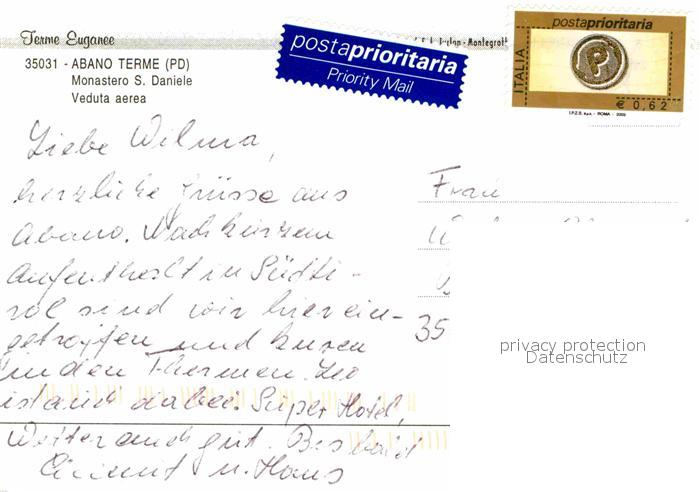 Terme Euganee
35031 - ABANO TERME (PD)
Monastero S. Daniele
Veduta aerea
postaprioritaria
Priority Mail
postaprioritaria
ITALIA
€ 0,62
I.P.Z.S. S.p.A. - ROMA - 2002
Liebe Wilma,
herzliche Grüsse aus
Abano. Nach kurzem
Aufenthalt in Südti-
rol sind wir hier ein-
getroffen und kuren
in den Thermen. Leo
ist auch dabei. Super Hotel,
Wetter auch gut. Bis bald
u. Hans
Frau
35
privacy protection
Datenschutz